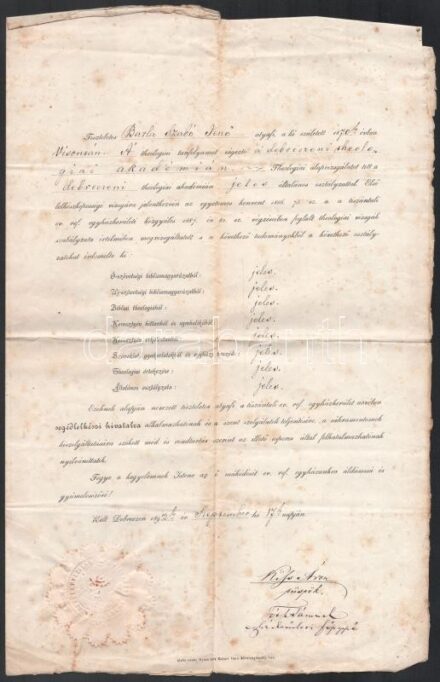 Tiszteletes Barla Szabó Jenő atyafi, a ki született 1870 ik évben
A theologiai tanfolyamot végezte a debreczeni theolo-
giai akadémián. Theologiai alapvizsgálatot tett a
debreczeni theologiai akadémián jeles általános osztályzattal. Első
lelkészképességi vizsgára jelentkezvén az egyetemes konvent
ev. ref. egyházkerületi közgyűlés és ez végzésében foglalt theologiai vizsgák
szabályzata értelmében megvizsgáltatott s a következő tudományokból a következő osztály-
zatokat érdemelte ki:
Ó-szövetségi bibliamagyarázatból: jeles.
Uj-szövetségi bibliamagyarázatból: jeles.
Bibliai theologiából: jeles.
Keresztyén hittanból és symbolikából: jeles.
Keresztyén erkölcstanból: jeles.
jeles.
Theologiai értekezése: jeles.
Általános osztályzata: jeles.
Ezeknek alapján nevezett tiszteletes atyafi a tiszántúli ev. ref. egyházkerület
segédlelkészi hivatalra alkalmazhatónak és a szent szolgálatok teljesítésére, a sákramentomok
kiszolgáltatására szokott mód és rendtartás szerint az illető esperes által felhatalmazhatónak
nyilváníttatik.
Tegye a kegyelemnek Istene az ő működését ev. ref. egyházunkra áldásossá és
gyümölcsözővé!
Kelt Debreczen 1892 ik év Szeptember hó 17 napján.
Kiss Áron
püspök.
Tóth Sámuel